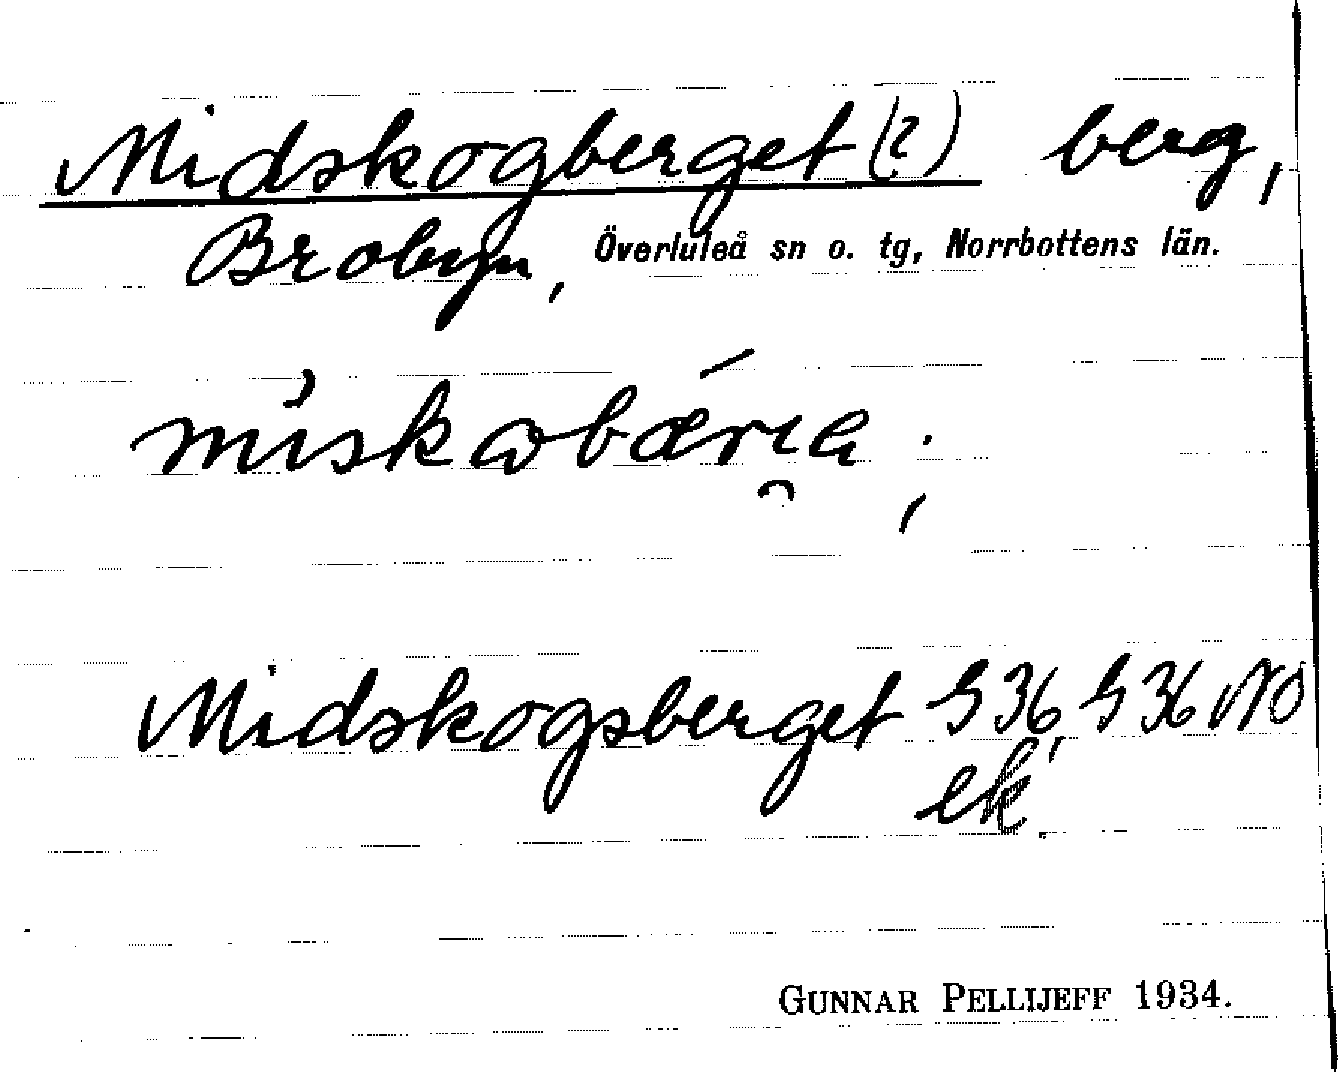 Midskogberget (?) berg,
Brobyn, Överluleå sn o. tg, Norrbottens län.
Midskogsberget G 36, G 36 NO
ek.
GUNNAR PELLIJEFF 1934.